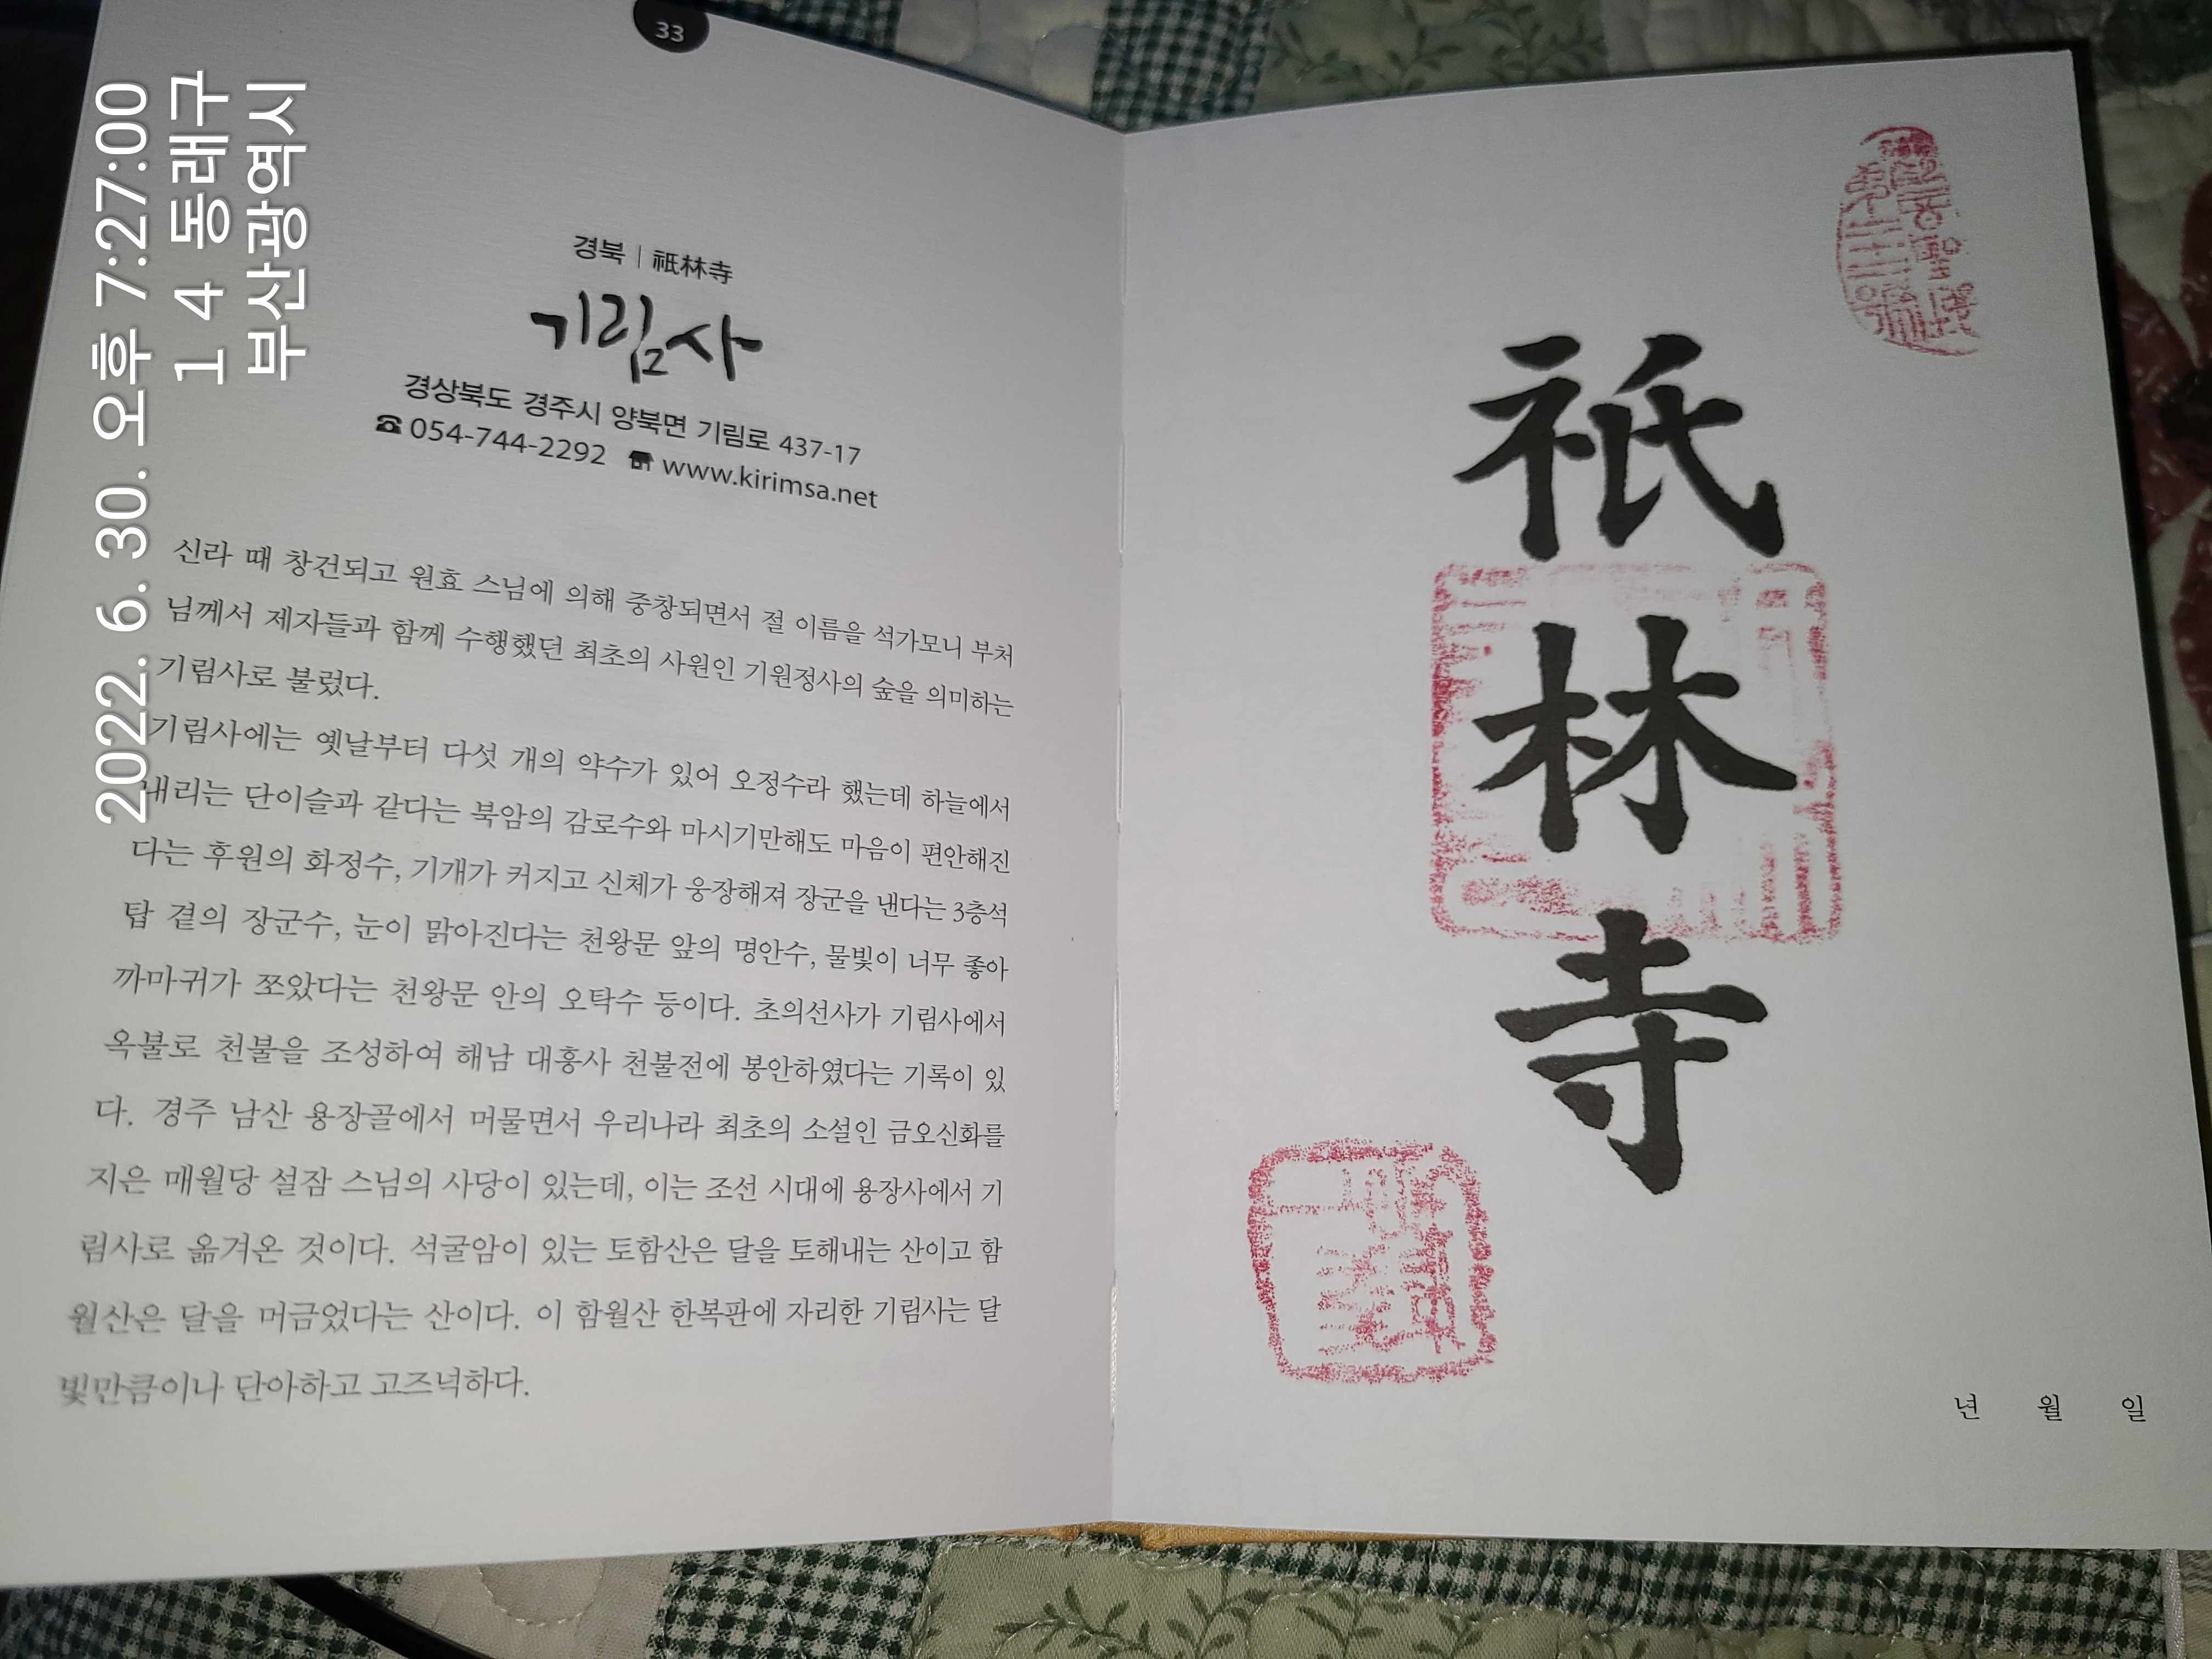 33
경북 | 祇林寺
기림사
경상북도 경주시 양북면 기림로 437-17
☎ 054-744-2292 www.kirimsa.net
신라 때 창건되고 원효 스님에 의해 중창되면서 절 이름을 석가모니 부처
님께서 제자들과 함께 수행했던 최초의 사원인 기원정사의 숲을 의미하는
기림사로 불렀다.
기림사에는 옛날부터 다섯 개의 약수가 있어 오정수라 했는데 하늘에서
내리는 단이슬과 같다는 북암의 감로수와 마시기만해도 마음이 편안해진
다는 후원의 화정수, 기개가 커지고 신체가 웅장해져 장군을 낸다는 3층석
탑 곁의 장군수, 눈이 맑아진다는 천왕문 앞의 명안수, 물빛이 너무 좋아
까마귀가 쪼았다는 천왕문 안의 오탁수 등이다. 초의선사가 기림사에서
옥불로 천불을 조성하여 해남 대흥사 천불전에 봉안하였다는 기록이 있
다. 경주 남산 용장골에서 머물면서 우리나라 최초의 소설인 금오신화를
지은 매월당 설잠 스님의 사당이 있는데, 이는 조선 시대에 용장사에서 기
림사로 옮겨온 것이다. 석굴암이 있는 토함산은 달을 토해내는 산이고 함
월산은 달을 머금었다는 산이다. 이 함월산 한복판에 자리한 기림사는 달
빛만큼이나 단아하고 고즈넉하다.
祇
林
寺
년 월 일
2022. 6. 30. 오후 7:27:00
1 4 동래구
부산광역시